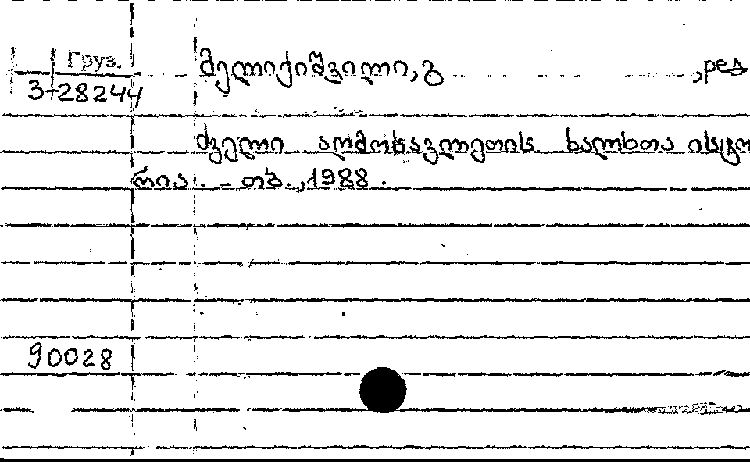 Груз.
მელიქიშვილი, გ , ред
3-28244
ძველი აღმოსავლეთის ხალხთა ისტო
რია. - თბ., 1988.
90028